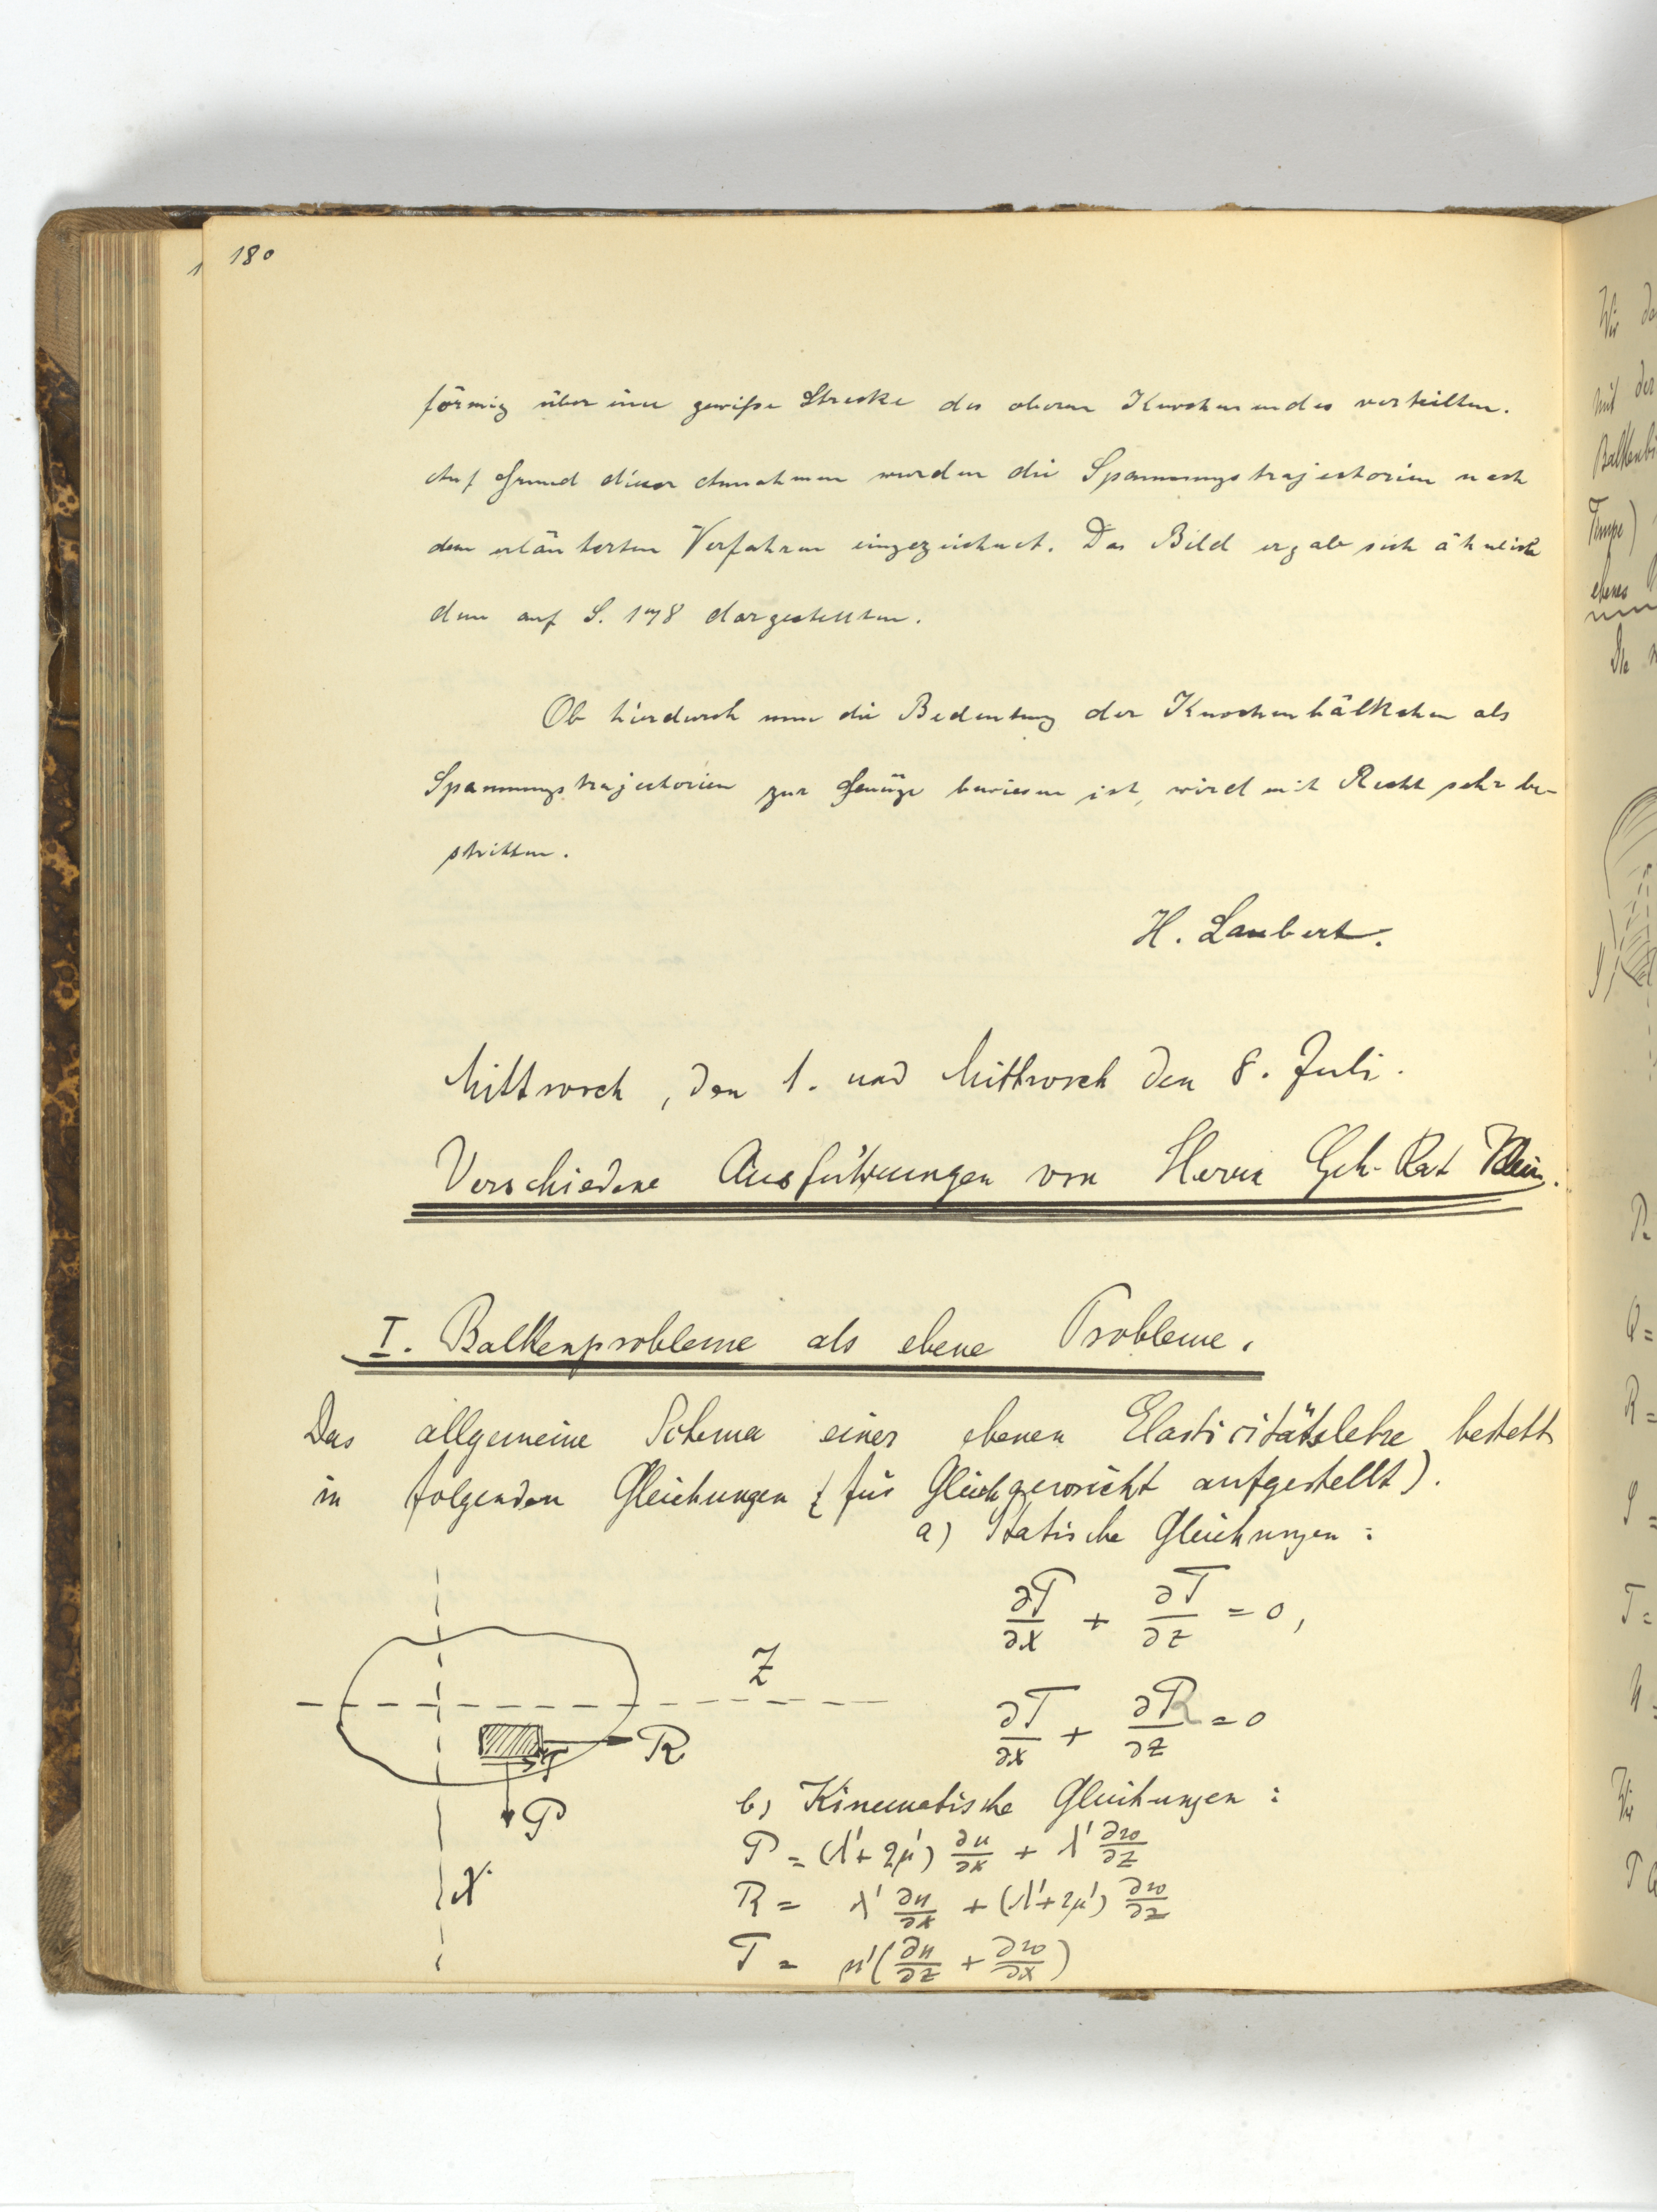 180
förmig über eine gewiße Strecke des oberen Knochenendes verteilten.
Auf Grund dieser Annahmen wurden die Spannungstrajectorien nach
dem erläuterten Verfahren eingezeichnet. Das Bild ergab sich ähnlich
dem auf S. 178 dargestellten.
Ob hierdurch nun die Bedeutung der Knochenbälkchen als
Spannungstrajectorien zur Genüge bewiesen ist, wird mit Recht sehr be-
stritten.
H. Laubert.
Mittwoch, den 1. und Mittwoch den 8. Juli.
Verschiedene Ausführungen von Herrn Geh. Rat Klein.
I. Balkenprobleme als ebene Probleme.
Das allgemeine Schema einer ebenen Elasticitätslehre besteht
in folgenden Gleichungen (für Gleichgewicht aufgestellt).
a) Statische Gleichungen:
∂P/∂x + ∂T/∂z = 0,
∂T/∂x + ∂R/∂z = 0
Z
R
T
P
X
b) Kinematische Gleichungen:
P = (λ'+2μ') ∂u/∂x + λ' ∂w/∂z
R = λ' ∂u/∂x + (λ'+2μ') ∂w/∂z
T = μ'(∂u/∂z + ∂w/∂x)
Wir
mit der
Balkenbi
ebenes
R =
T =
Wir